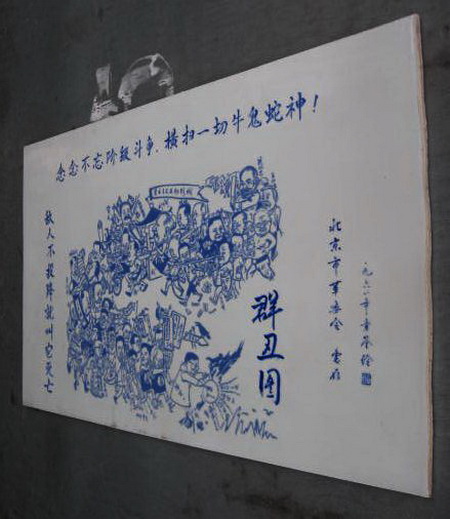 念念不忘阶级斗争,横扫一切牛鬼蛇神!
敌人不投降就叫它灭亡
群丑图
北京市革委会
一九六八年